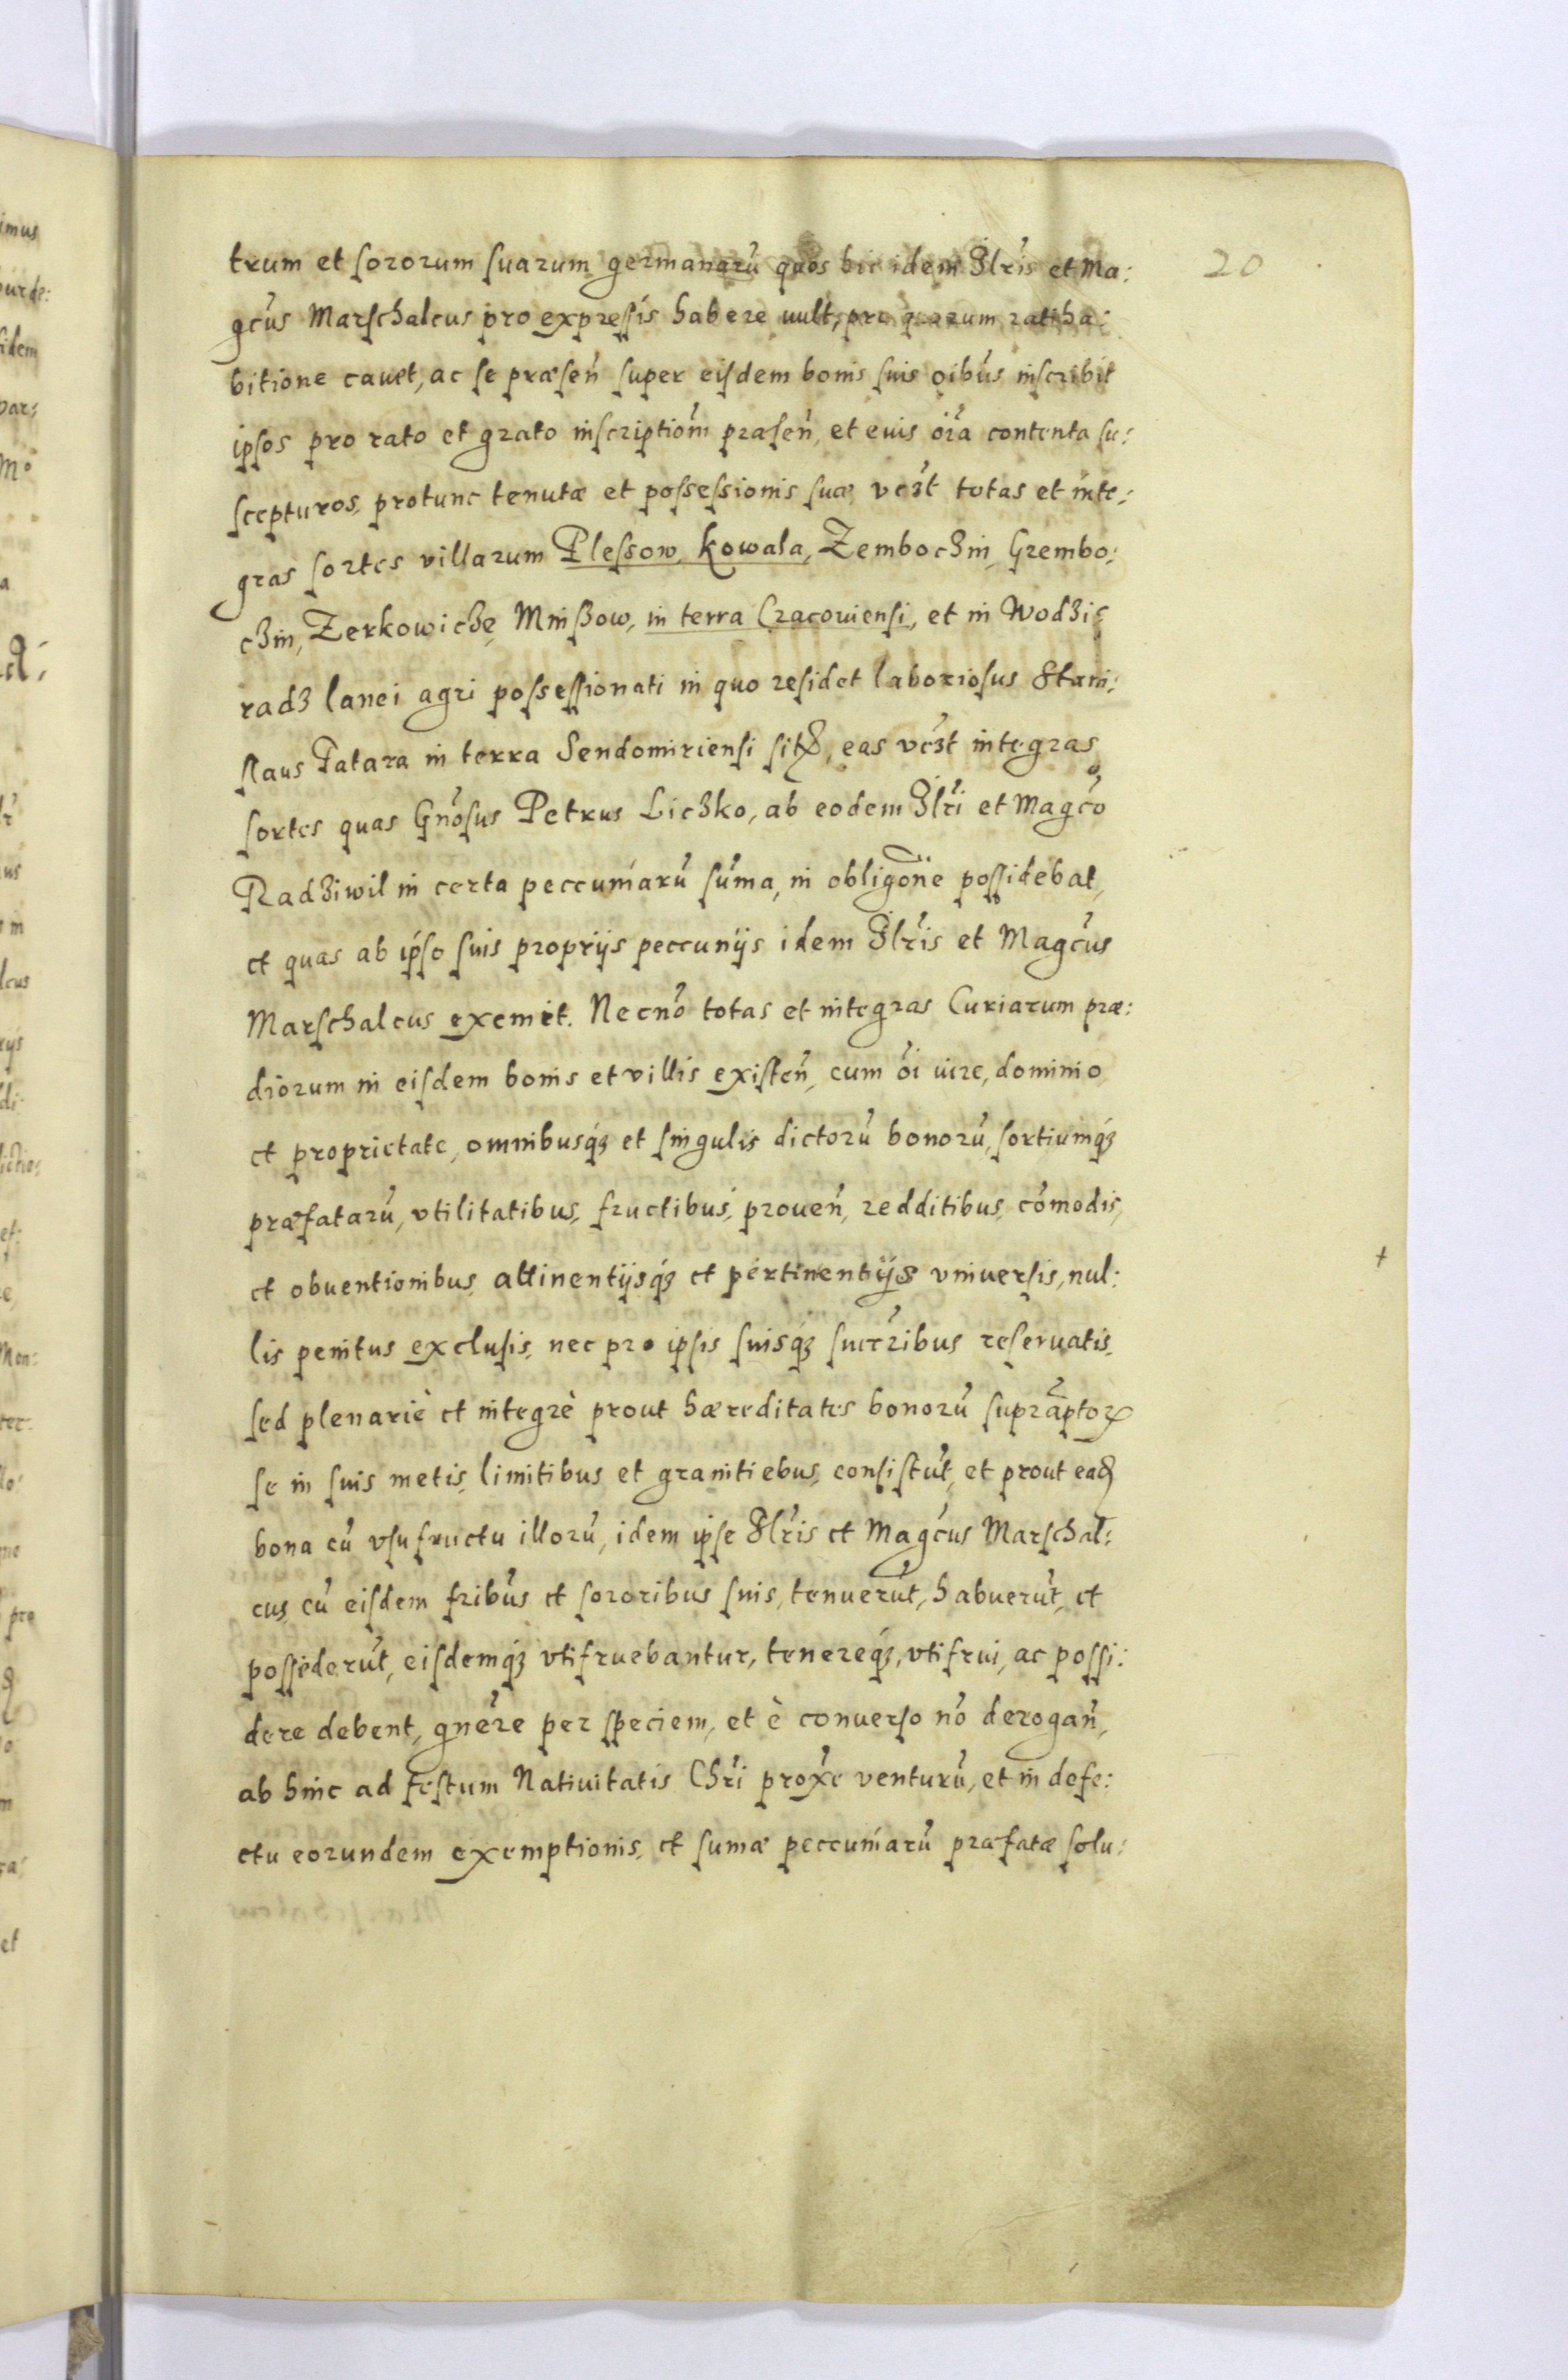 20
trum et sororum suarum germanarũ quos hic idem Illr̃is et Ma:
gcũs Marschalcus pro expressis habere uult, pro quorum ratiha:
bitione cauet, ac se præseñ super eisdem bonis suis oibũs inscribit
ipsos pro rato et grato inscriptioñm præseñ, et euis oĩa contenta su:
scepturos, protunc tenutæ et possessionis suæ, vcz̃t totas et inte:
gras sortes villarum Plessow, Kowala, Zembochin, Grembo:
chin, Zerkowicze, Mnißow, in terra Cracouiensi, et in Wodzi:
radz lanei agri possessionati in quo residet laboriosus Stani:
slaus Tatara in terra Sendomiriensi sitꝭ, eas vcz̃t integras
sortes quas Gnõsus Petrus Liczko, ab eodem Illr̃i et Magcõ
Radziwil in certa peccuniarũ sũma, in obligõne possidebat,
et quas ab ipso suis proprijs peccunijs idem Illr̃is et Magcũs
Marschalcus exemit. Necnõ totas et integras Curiarum præ:
diorum in eisdem bonis et villis existeñ, cum oĩ iure, dominio
et proprietate, omnibusq́ꝫ et singulis dictorũ bonorũ, sortiumq́ꝫ
præfatarũ, vtilitatibus, fructibus, proueñ, redditibus, cõmodis,
et obuentionibus, attinentijsq́ꝫ et pertinentijs vniuersis, nul:
lis penitus exclusis, nec pro ipsis suisq́ꝫ succr̃ibus reseruatis,
sed plenariè et integrè prout hæreditates bonorũ suprap̃torꝝ
se in suis metis, limitibus et granitiebus, consistũt, et prout eadꝫ
bona cũ vsufructu illorũ, idem ipse Illr̃is et Magcũs Marschal:
cus, cũ eisdem fribũs et sororibus suis, tenuerũt, habuerũt, et
possederũt, eisdemq́ꝫ vtifruebantur, tenereq́ꝫ, vtifrui, ac possi:
dere debent, gnẽre per speciem, et è conuerso nõ derogañ,
ab hinc ad festum Natiuitatis Chr̃i prox̃e venturũ, et in defe:
ctu eorundem exemptionis, et sumæ peccuniarũ præfatæ solu: